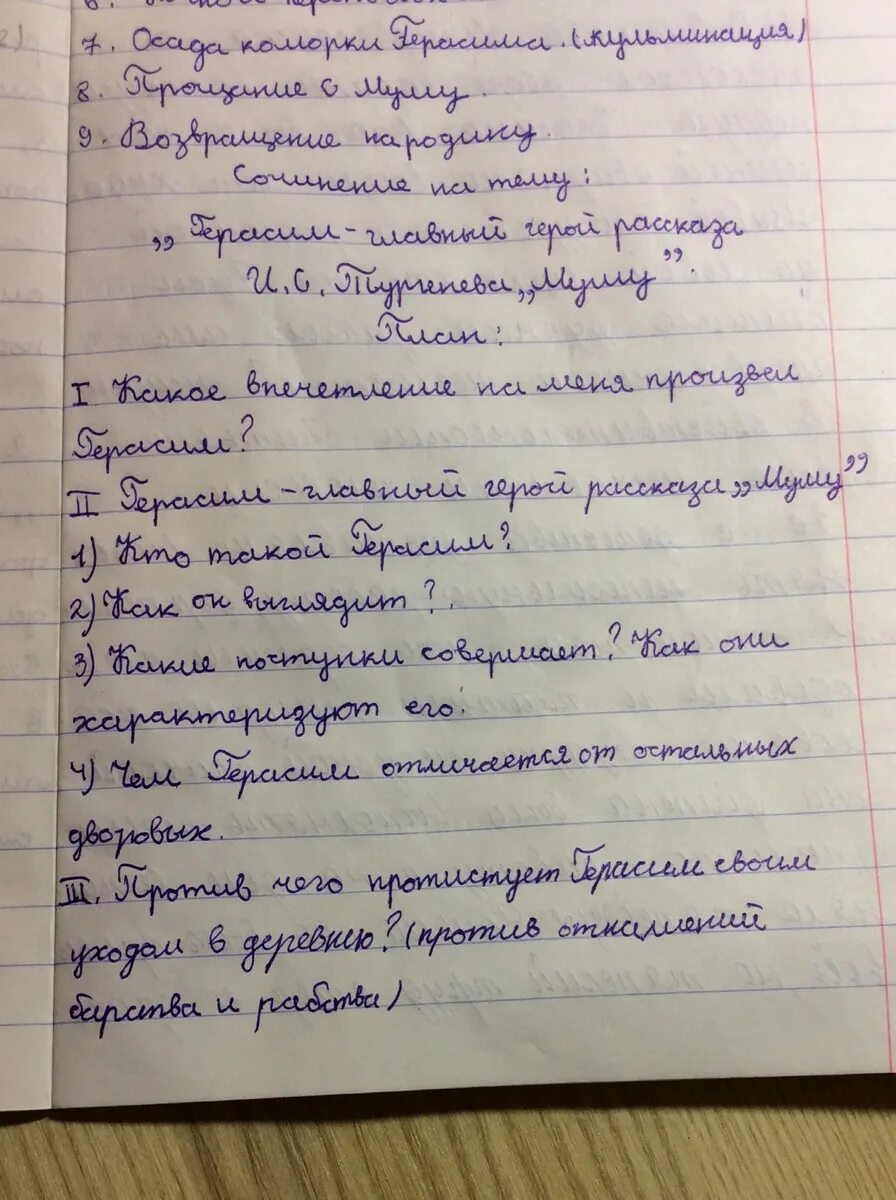 7. Осада коморки Герасима. (кульминация)
8. Прощание с Муму.
9. Возвращение народину.
Сочинение на тему:
„Герасим – главный герой рассказа
И. С. Тургенева „Муму”.
План:
I Какое впечетление на меня произвел
Герасим?
II Герасим – главный герой рассказа „Муму”
1) Кто такой Герасим?
2) Как он выглядит?.
3) Какие поступки совершает? Как они
характеризуют его.
4) Чем Герасим отличается от остальных
дворовых.
III. Против чего протистует Герасим своим
уходом в деревню? (против отнашений
барства и рабства)